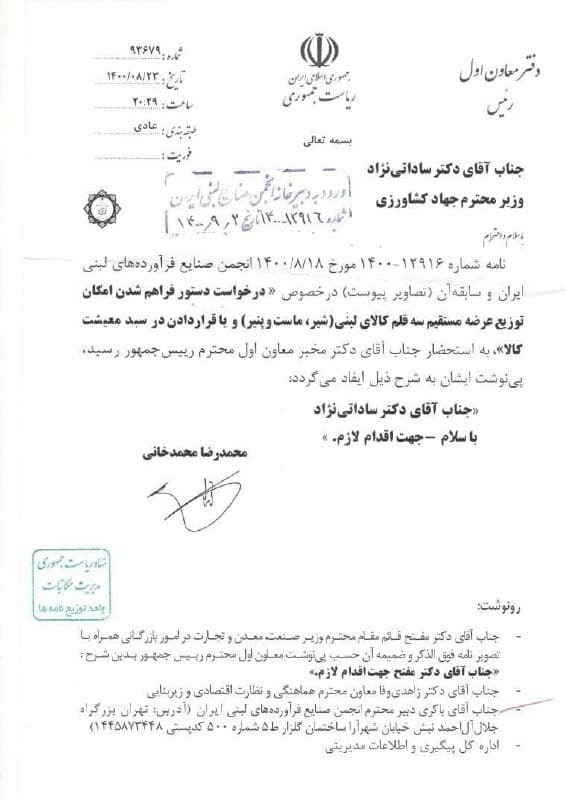 دفتر معاون اول
رئیس
جمهوری اسلامی ایران
ریاست جمهوری
شماره: ۹۳۶۷۹
تاریخ: ۱۴۰۰/۰۸/۲۳
ساعت: ۲۰:۲۹
طبقه بندی: عادی
فوریت:
بسمه تعالی
جناب آقای دکتر ساداتی‌نژاد
وزیر محترم جهاد کشاورزی
ورود به دبیرخانه انجمن صنایع لبنی ایران
شماره ۱۴۰۰-۱۲۹۱۶ تاریخ ۱۴۰۰،۹،۲
با سلام و احترام
نامه شماره ۱۲۹۱۶-۱۴۰۰ مورخ ۱۴۰۰/۸/۱۸ انجمن صنایع فرآورده‌های لبنی
ایران و سابقه‌آن (تصاویر پیوست) درخصوص « درخواست دستور فراهم شدن امکان
توزیع عرضه مستقیم سه قلم کالای لبنی (شیر، ماست و پنیر) و یا قراردادن در سبد معیشت
کالا»، به استحضار جناب آقای دکتر مخبر معاون اول محترم رییس‌جمهور رسید،
پی‌نوشت ایشان به شرح ذیل ایفاد می‌گردد:
«جناب آقای دکتر ساداتی‌نژاد
با سلام – جهت اقدام لازم. »
محمدرضا محمدخانی
نهاد ریاست جمهوری
مدیریت مکاتبات
واحد توزیع نامه ها
رونوشت:
- جناب آقای دکتر مفتح قائم مقام محترم وزیر صنعت، معدن و تجارت در امور بازرگانی همراه با
تصویر نامه فوق الذکر و ضمیمه آن حسب پی‌نوشت معاون اول محترم رییس جمهور بدین شرح :
«جناب آقای دکتر مفتح جهت اقدام لازم.»
- جناب آقای دکتر زاهدی‌وفا معاون محترم هماهنگی و نظارت اقتصادی و زیربنایی
- جناب آقای باکری دبیر محترم انجمن صنایع فرآورده‌های لبنی ایران (آدرس: تهران بزرگراه
جلال‌آل‌احمد نبش خیابان شهرآرا ساختمان گلزار ط۵ شماره ۵۰۰ کدپستی ۱۴۴۵۸۷۳۴۴۸)
- اداره کل پیگیری و اطلاعات مدیریتی